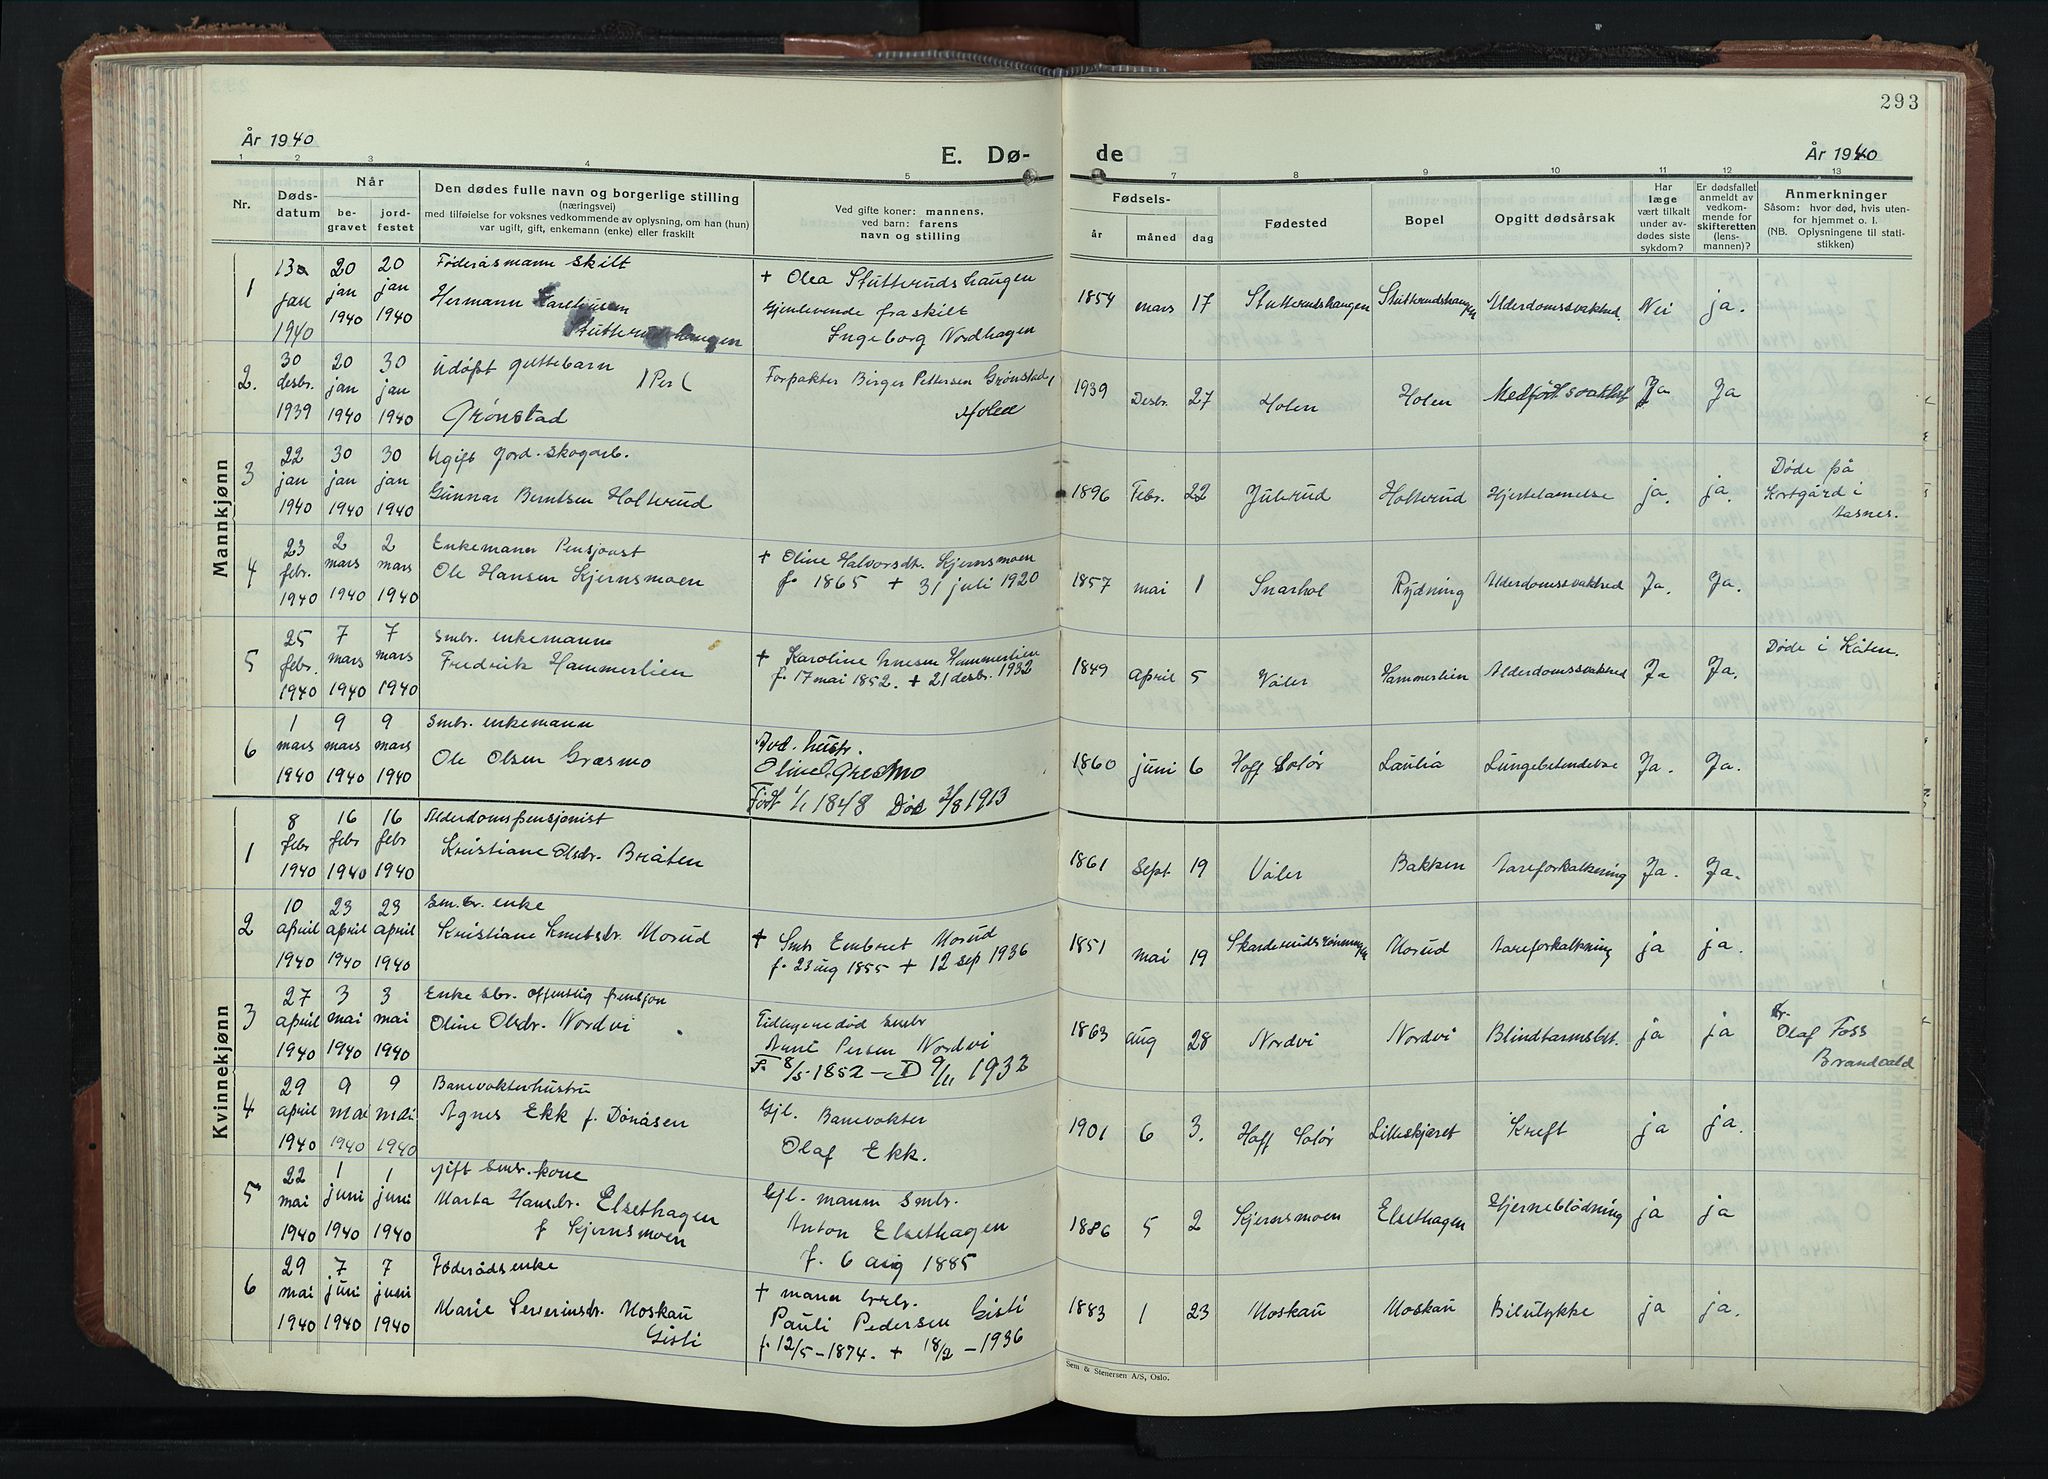 293
År 1940
E. Dø- de
År 1940
1 2 3 4 5 7 8 9 10 11 12 13
Nr.
Døds-
datum
Når
be-
gravet
jord-
festet
Den dødes fulle navn og borgerlige stilling
(næringsvei)
med tilføielse for voksnes vedkommende av oplysning, om han (hun)
var ugift, gift, enkemann (enke) eller fraskilt
Ved gifte koner: mannens,
ved barn: farens
navn og stilling
Fødsels-
år måned dag
Fødested
Bopel
Opgitt dødsårsak
Har
læge
vært tilkalt
under av-
dødes siste
sykdom?
Er dødsfallet
anmeldt av
vedkom-
mende for
skifteretten
(lens-
mannen)?
Anmerkninger
Såsom: hvor død, hvis uten-
for hjemmet o. l.
(NB. Oplysningene til stati-
stikken)
Mannkjønn
1
13 jan 1940
20 jan 1940
20 jan 1940
Føderåsmann skilt
Hermann
Stutterudshaugen
+ Olea Stutterudshaugen
Gjenlevende fraskilt
Ingeborg Nordhagen
1854 mars 17 Stutterudshaugen Stutterudshaugen Alderdomssvakhed. Nei ja.
2.
30 desbr. 1939
20 jan 1940
30 jan 1940
Udøpt guttebarn
Per
Grønstad
Forpakter Birger Pettersen Grønstad,
Holen
1939 Desbr. 27 Holen Holen Medfødt svakhet Ja Ja
3
22 jan 1940
30 jan 1940
30 jan 1940
Ugift jord-skogarb.
Gunnar Berntsen Holterud
1896 Febr. 22 Juterud Holterud Hjertelamelse ja. ja.
Døde på
i
Aasnes.
4
23 febr. 1940
2 mars 1940
2 mars 1940
Enkemann Pensjonist
Ole Hansen Kjernsmoen
+ Oline Halvorsdt. Kjernsmoen
f. 1865 + 31 juli 1920
1857 mai 1 Snarhol Rydning Alderdomssvakhed Ja. Ja.
5
25 febr. 1940
7 mars 1940
7 mars 1940
Smbr. enkemann
Fredrik Hammerlien
+ Karoline Hammerlien
f. 17 mai 1852. + 21 desbr. 1932
1849 April 5 Våler Hammerlien Alderdomssvakhed Ja Ja.
Døde i Kåten.
6
1 mars 1940
9 mars 1940
9 mars 1940
Smbr. enkemann
Ole Olsen Græsmo
Avd. hustr.
Oline Gresmo
Født 1/1 1848 Død 3/8 1913
1860 juni 6 Hoff Solør Laulia Lungebetendelse Ja. Ja.
Kvinnekjønn
1
8 febr 1940
16 febr 1940
16 febr 1940
Alderdomspensjonist
Kristiane Olsdr. Bråten
1861 Sept 19 Våler Bakken Aareforkalkning Ja. Ja.
2
10 april 1940
23 april 1940
23 april 1940
Sm.br. enke
Kristiane Knutsdr. Morud
+ Smbr Embret Morud
f. 23 aug 1855 + 12 sep 1936
1851 mai 19 Morud Aareforkalkning ja ja.
3
27 april 1940
3 mai 1940
3 mai 1940
Enke sbr. offentlig pensjon
Oline Olsdr. Nordvi
Tidligere død Smbr
Arne Persen Nordvi
F. 8/5 1852 – D 9/11 1932
1863 aug 28 Nordvi Nordvi Blindtarmsbet. ja ja
br.
Olaf Foss
Brandvald
4
29 april 1940
9 mai 1940
9 mai 1940
Banevokterhustru
Agnes Ekk f. Dønåsen
Gjl. Banevokter
Olaf Ekk.
1901 6 3. Hoff Solør Lilleskjæret Kreft ja ja.
5
22 mai 1940
1 juni 1940
1 juni 1940
Gift Smbr. kone
Marta Hansdr. Elsethagen
f Kjernsmoen
Gjl. mann Smbr.
Anton Elsethagen
f. 6 aug 1885
1886 5 2 Kjernsmoen Elsethagen Hjerneblødning ja ja
6
29 mai 1940
7 juni 1940
7 juni 1940
Føderådsenke
Marie Severinsdr. Moskau
Gisti
+ mann
Pauli Pedersen Gisti
f. 12/5 – 1874. + 18/2 – 1936
1883 1 23 Moskau Moskau Bilulykke ja ja.
Sem & Stenersen A/S, Oslo.